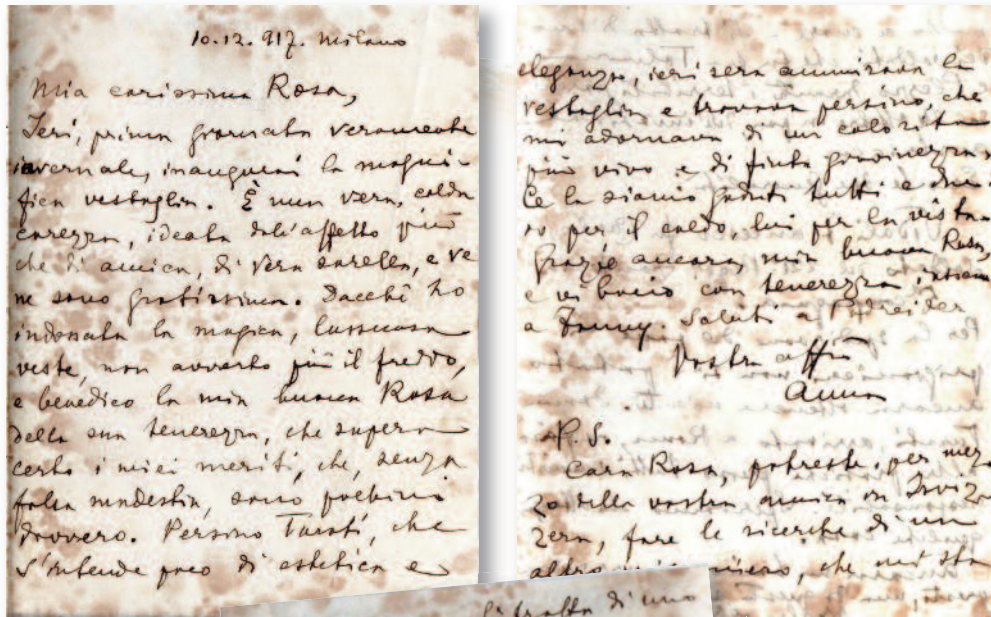 10.12.917. Milano
Mia carissima Rosa,
Ieri, prima giornata veramente
invernale, inaugurai la magni-
fica vestaglia. È una vera, calda
carezza, ideata dall'affetto più
che di amica, di vera sorella, e ve
ne sono gratissima. Dacchè ho
indossata la magica, lussuosa
veste, non avverto più il freddo,
e benedico la mia buona Rosa
della sua tenerezza, che supera
certo i miei meriti, che, senza
falsa modestia, sono pochini
davvero. Persino Turati, che
s'intende poco di estetica e
eleganza, ieri sera ammirava la
vestaglia e trovava persino, che
mi adornava di un colorito
più vivo e di finta giovinezza.
Ce la siamo goduti tutti e due.
io per il caldo, lui per la vista.
Grazie ancora, mia buona Rosa,
e vi bacio con tenerezza, insieme
a Fanny. Saluti a
vostra affma
Anna
P.S.
Cara Rosa, potreste, per mez-
zo della vostra amica in Isviz-
zera, fare le ricerche di un
altro che mi sta
Si tratta di uno